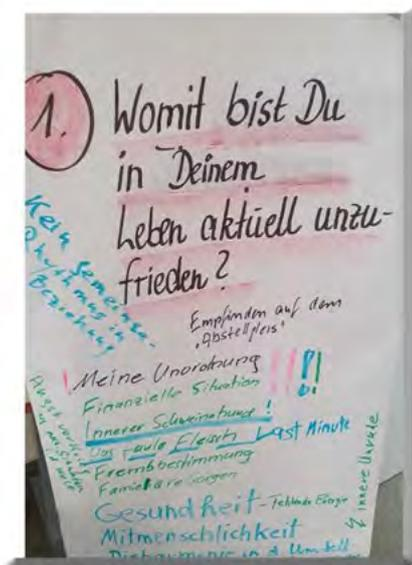 1.
Womit bist Du
in Deinem
Leben aktuell unzu-
frieden?
Kein gemeinsa-
Rhythmus in
Beziehung
Empfinden auf dem
"Abstellgleis"
Meine Unordnung
Finanzielle Situation
Innerer Schweinehund!
Das faule Fleisch Last Minute
Fremdbestimmung
Familiäre Sorgen
Gesundheit - Fehlende Energie
Mitmenschlichkeit
Disharmonie in d. Umwelt
Angst
innere Unruhe